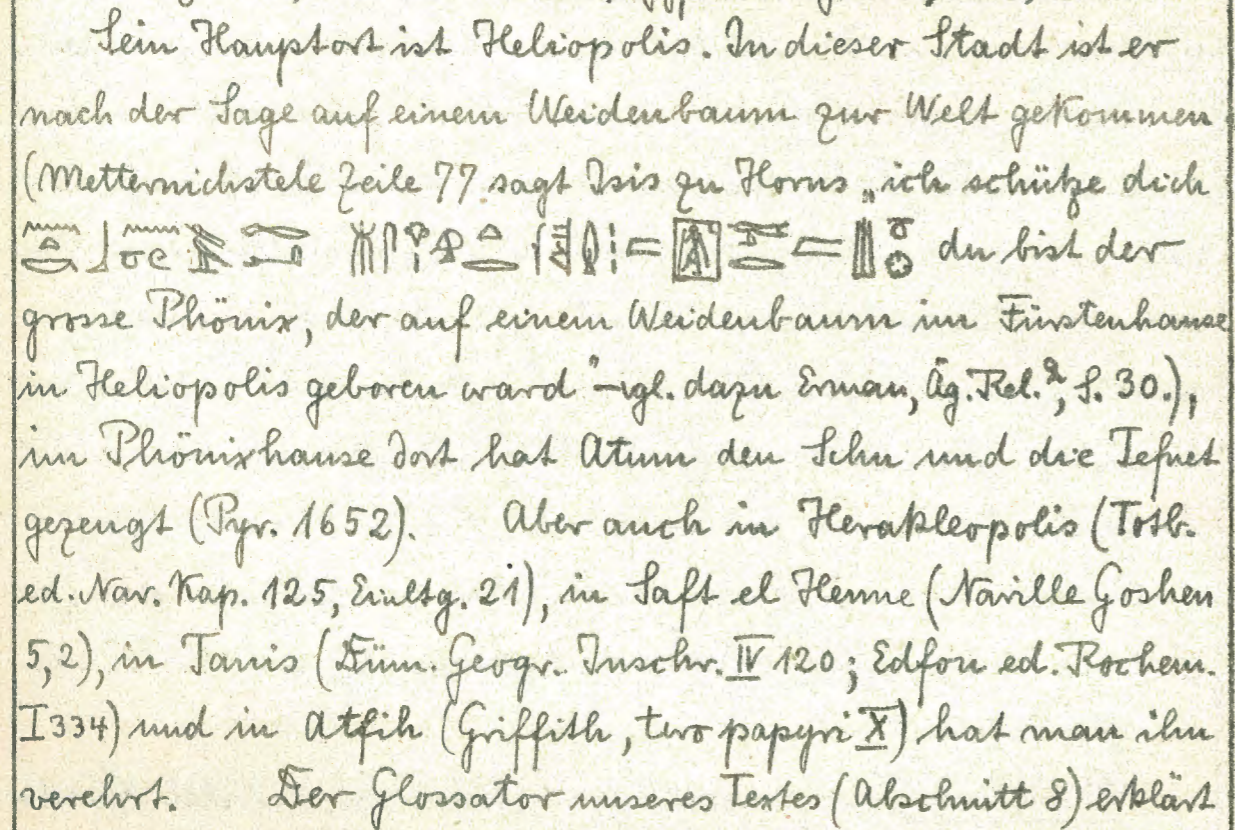 Sein Hauptort ist Heliopolis. In dieser Stadt ist er
nach der Sage auf einem Weidenbaum zur Welt gekommen
(Metternichstele Zeile 77 sagt Isis zu Horus „ich schütze dich
du bist der
grosse Phönix, der auf einem Weidenbaum im Fürstenhause
in Heliopolis geboren ward" – vgl. dazu Erman, Äg. Rel.², S. 30.),
im Phönixhause dort hat Atum den Schu und die Tefnet
gezeugt (Pyr. 1652). Aber auch in Herakleopolis (Totb.
ed. Nav. Kap. 125, Einltg. 21), in Saft el Henne (Naville Goshen
5,2), in Tanis (Düm. Geogr. Inschr. IV 120; Edfou ed. Rochem.
I 334) und in Atfih (Griffith, two papyri X) hat man ihn
verehrt. Der Glossator unseres Textes (Abschnitt 8) erklärt